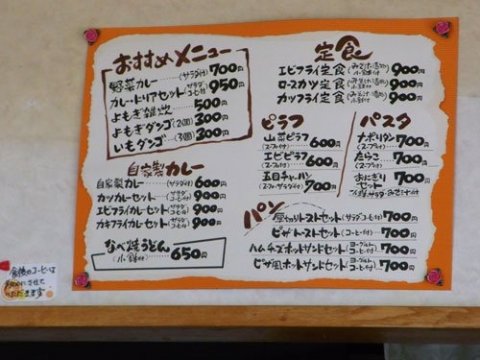 おすすめメニュー
野菜カレー(サラダ付) 700円
カレードリアセット 950円
よもぎ雑炊 500円
よもぎダンゴ(2個) 300円
いもダンゴ(3個) 300円
自家製カレー
自家製カレー(サラダ付) 600円
カツカレーセット 900円
エビフライカレーセット 900円
カキフライカレーセット 900円
なべ焼うどん(小鉢付) 650円
定食
エビフライ定食 900円
ロースカツ定食 900円
カツフライ定食 900円
ピラフ
山菜ピラフ(スープ付) 600円
エビピラフ(スープ付) 600円
五目チャーハン(スープ・サラダ付) 700円
パスタ
ナポリタン(スープ付) 700円
たらこ(スープ付) 700円
おにぎりセット 700円
パン
厚切りトーストセット(サラダ・コーヒー付) 700円
ピザトーストセット(コーヒー付) 700円
ハムチーズホットサンドセット(ヨーグルト・コーヒー付) 700円
ピザ風ホットサンドセット(ヨーグルト・コーヒー付) 700円
食後のコーヒーは
ただきます